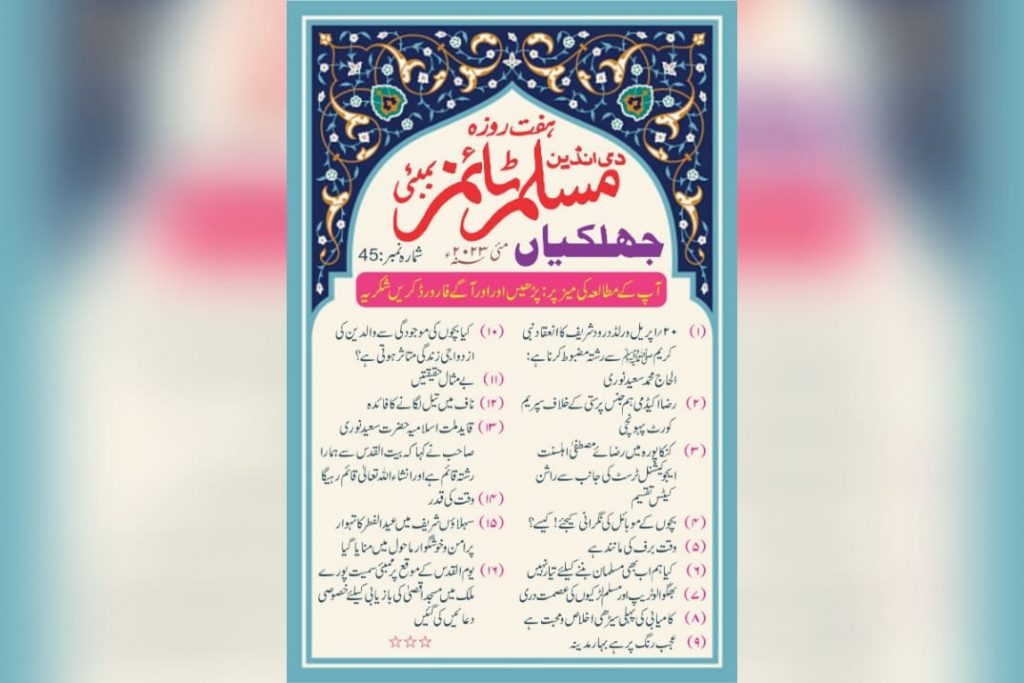 ہفت روزہ
دی انڈین
مسلم ٹائمز بمبئی
جھلکیاں مئی ۲۰۲۳ء شمارہ نمبر: 45
آپ کے مطالعہ کی میز پر: پڑھیں اور اور آگے فارورڈ کریں شکریہ
(۱) ۲۰؍اپریل ورلڈ درود شریف کا انعقاد نبی
کریم ﷺ سے رشتہ مضبوط کرنا ہے:
الحاج محمد سعید نوری
(۲) رضا اکیڈمی ہم جنس پرستی کے خلاف سپریم
کورٹ پہونچی
(۳) کنکاپورہ میں رضائے مصطفیٰ اہلسنت
ایجوکیشنل ٹرسٹ کی جانب سے راشن
کیٹس تقسیم
(۴) بچوں کے موبائل کی نگرانی کیجئے! کیسے؟
(۵) وقت برف کی مانند ہے
(۶) کیا ہم اب بھی مسلمان بننے کیلئے تیار نہیں
(۷) بھگوا لو ٹریپ اور مسلم لڑکیوں کی عصمت دری
(۸) کامیابی کی پہلی سیڑھی اخلاص و محبت ہے
(۹) عجب رنگ پر ہے بہار مدینہ
(۱۰) کیا بچوں کی موجودگی سے والدین کی
ازدواجی زندگی متاثر ہوتی ہے؟
(۱۱) بے مثال حقیقتیں
(۱۲) ناف میں تیل لگانے کا فائدہ
(۱۳) قاید ملت اسلامیہ حضرت سعید نوری
صاحب نے کہا کہ بیت القدس سے ہمارا
رشتہ قائم ہے اور انشاء اللہ تعالیٰ قائم رہیگا
(۱۴) وقت کی قدر
(۱۵) سہلاؤں شریف میں عید الفطر کا تہوار
پرامن و خوشگوار ماحول میں منایا گیا
(۱۶) یوم القدس کے موقع پر ممبئی سمیت پورے
ملک میں مسجد اقصیٰ کی بازیابی کیلئے خصوصی
دعائیں کی گئیں